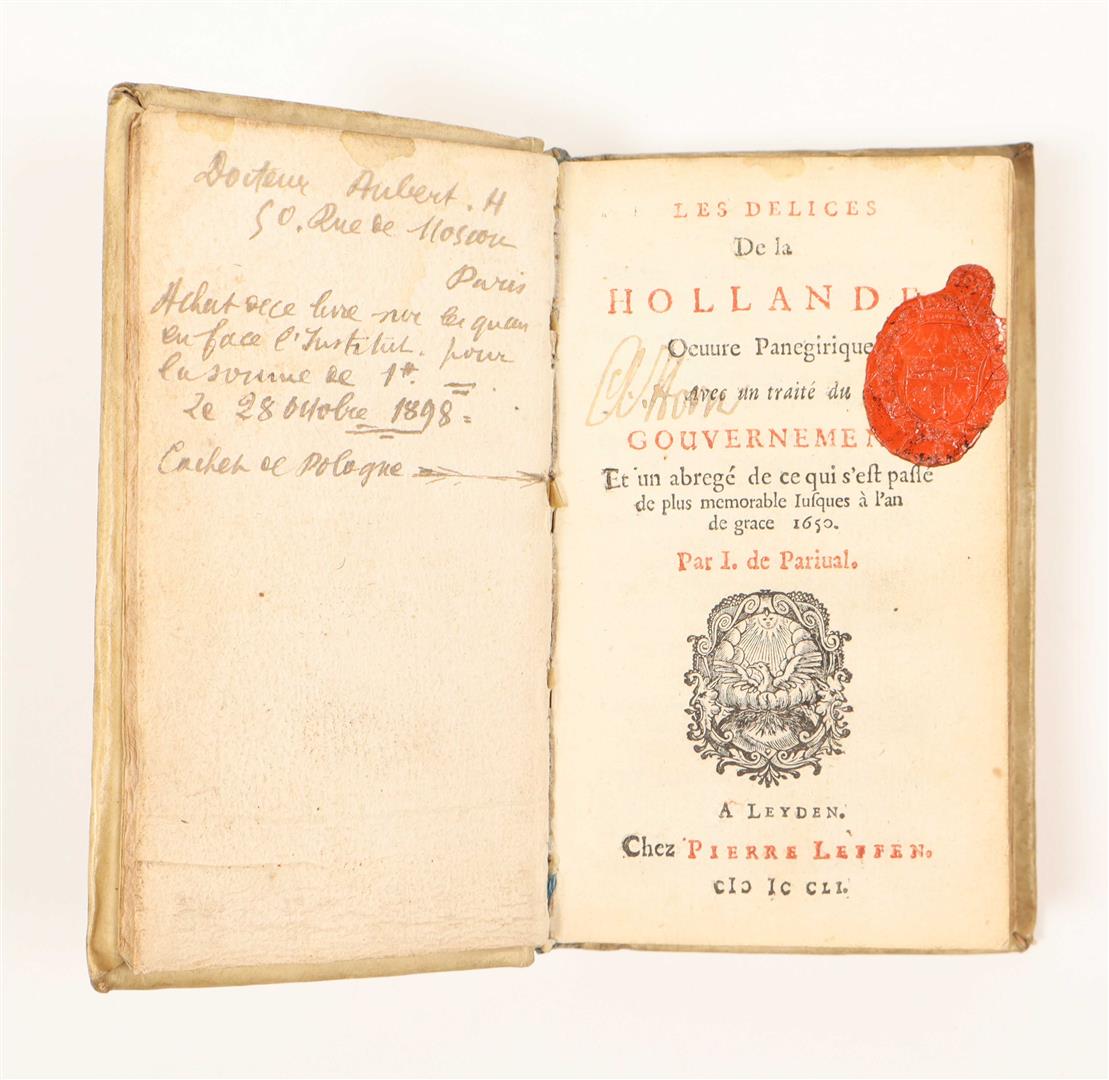 Docteur Aubert. H
50. Rue de Moscou
Paris
Achat de ce livre sur les quais
en face l'Institut. pour
la somme de 1
Le 28 Octobre 1898
Cachet de Pologne
LES DELICES
De la
HOLLANDE
Oeuure Panegirique
Avec un traité du
GOUVERNEMEN
Et un abregé de ce qui s'est passé
de plus memorable Iusques à l'an
de grace 1650.
Par I. de Pariual.
A LEYDEN.
Chez PIERRE LEFFEN.
cIɔ Ic CLI.